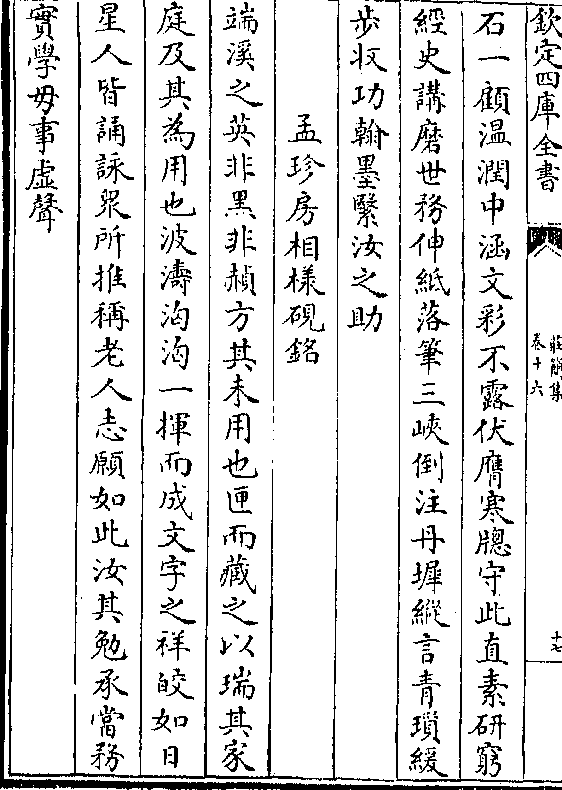 欽定四庫全書
莊簡集
卷十六
十七
石一顧温潤中涵文彩不露伏膺寒牎守此直素研窮
經史講磨世務伸紙落筆三峽倒注丹墀縱言青瑣緩
步收功翰墨繄汝之助
孟珍房相様硯銘
端溪之英非黑非赬方其未用也匣而藏之以瑞其家
庭及其為用也波濤洶洶一揮而成文字之祥皎如日
星人皆誦詠眾所推稱老人志願如此汝其勉承當務
實學毋事虚聲